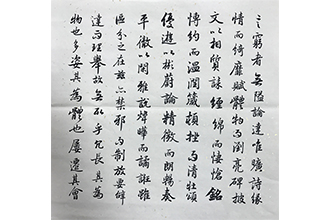 言窮者無隘論達唯曠詩緣
情而綺靡賦體物而瀏亮碑披
文以相質誄纏綿而悽愴銘
博約而溫潤箴頓挫而清壯頌
優遊以彬蔚論精微而朗暢奏
平徹以閑雅說煒曄而譎誑雖
區分之在茲亦禁邪而制放要辭
達而理舉故無取乎冗長其為
物也多姿其為體也屢遷其會